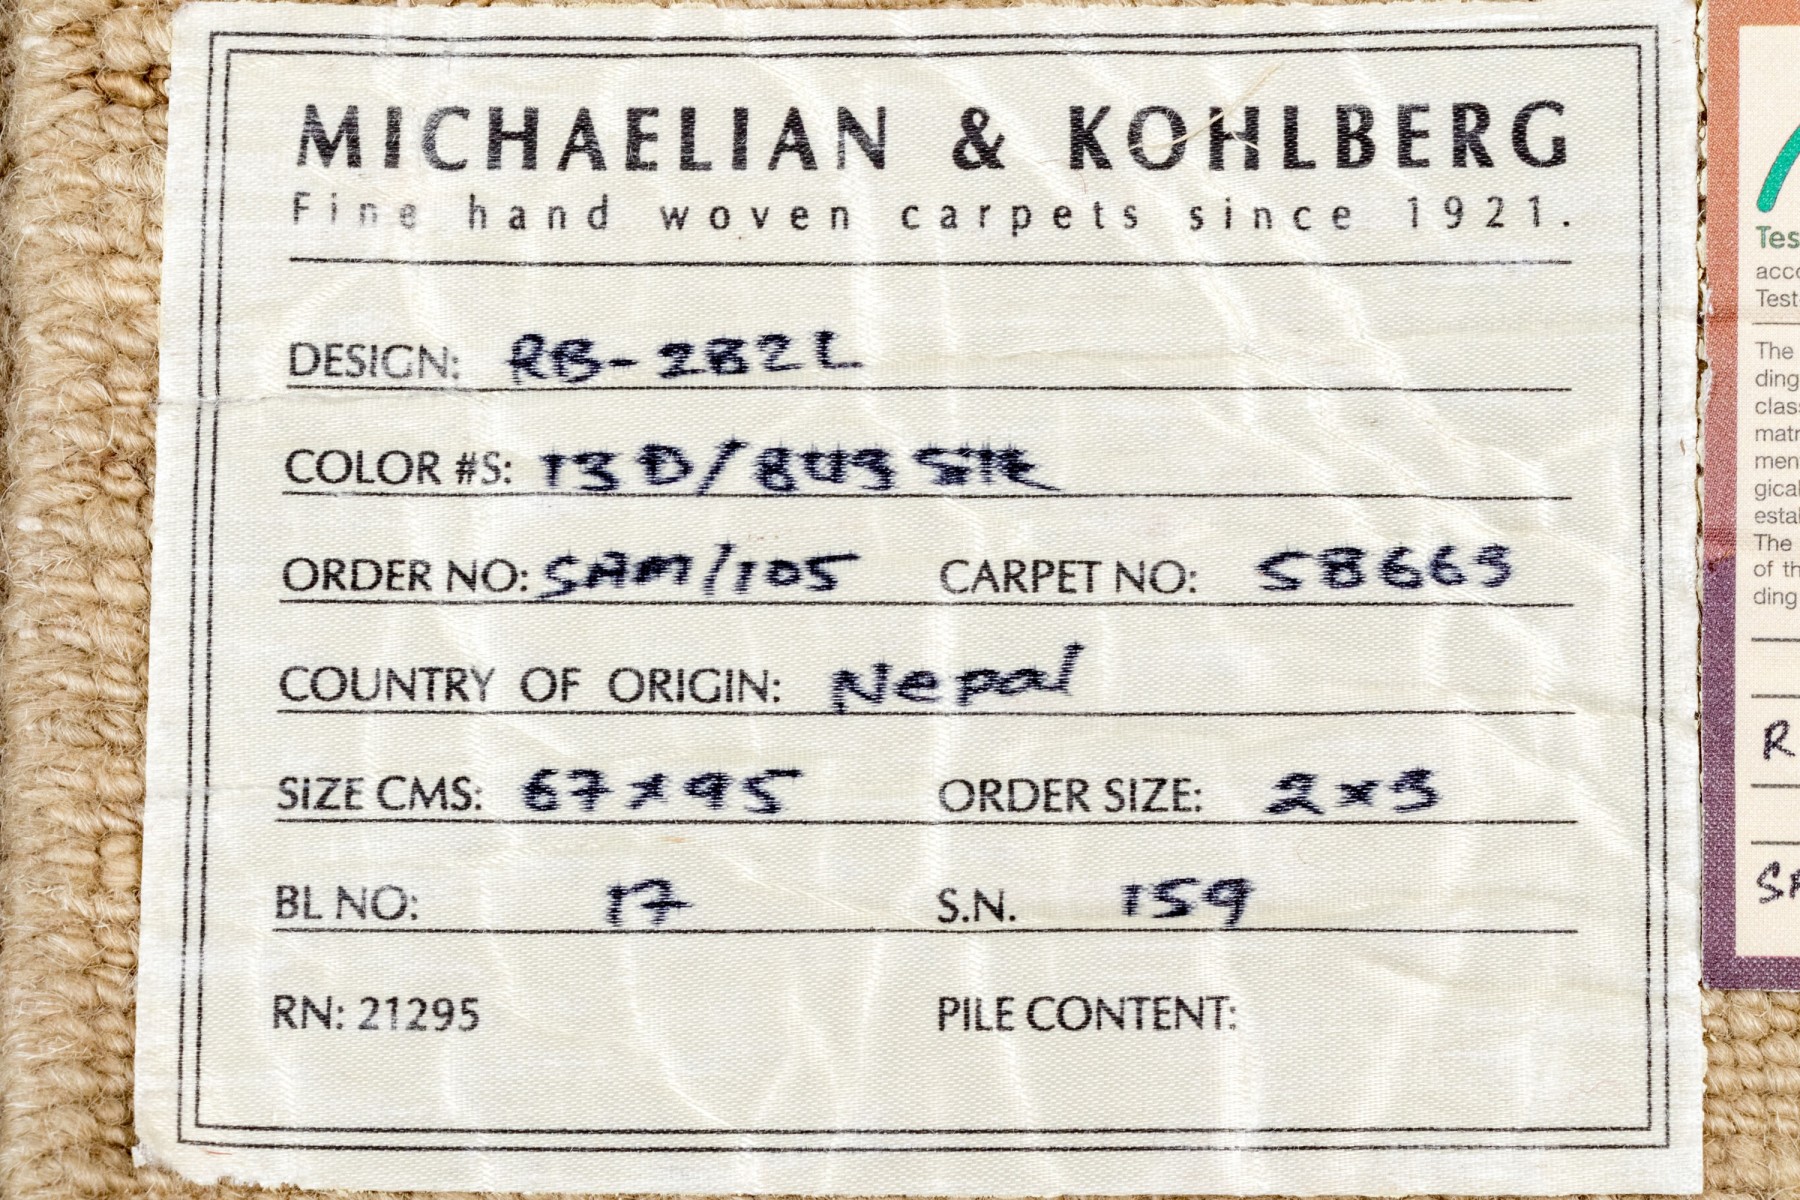 MICHAELIAN & KOHLBERG
Fine hand woven carpets since 1921.
DESIGN: RB-282L
COLOR #S: 13D/843 Silk
ORDER NO: SAM/105 CARPET NO: 58663
COUNTRY OF ORIGIN: Nepal
SIZE CMS: 67x95 ORDER SIZE: 2x3
BL NO: 17 S.N. 159
RN: 21295 PILE CONTENT:
Tes
acco
Test
The
ding
class
matr
men
gical
estal
The
of th
ding
R
SA